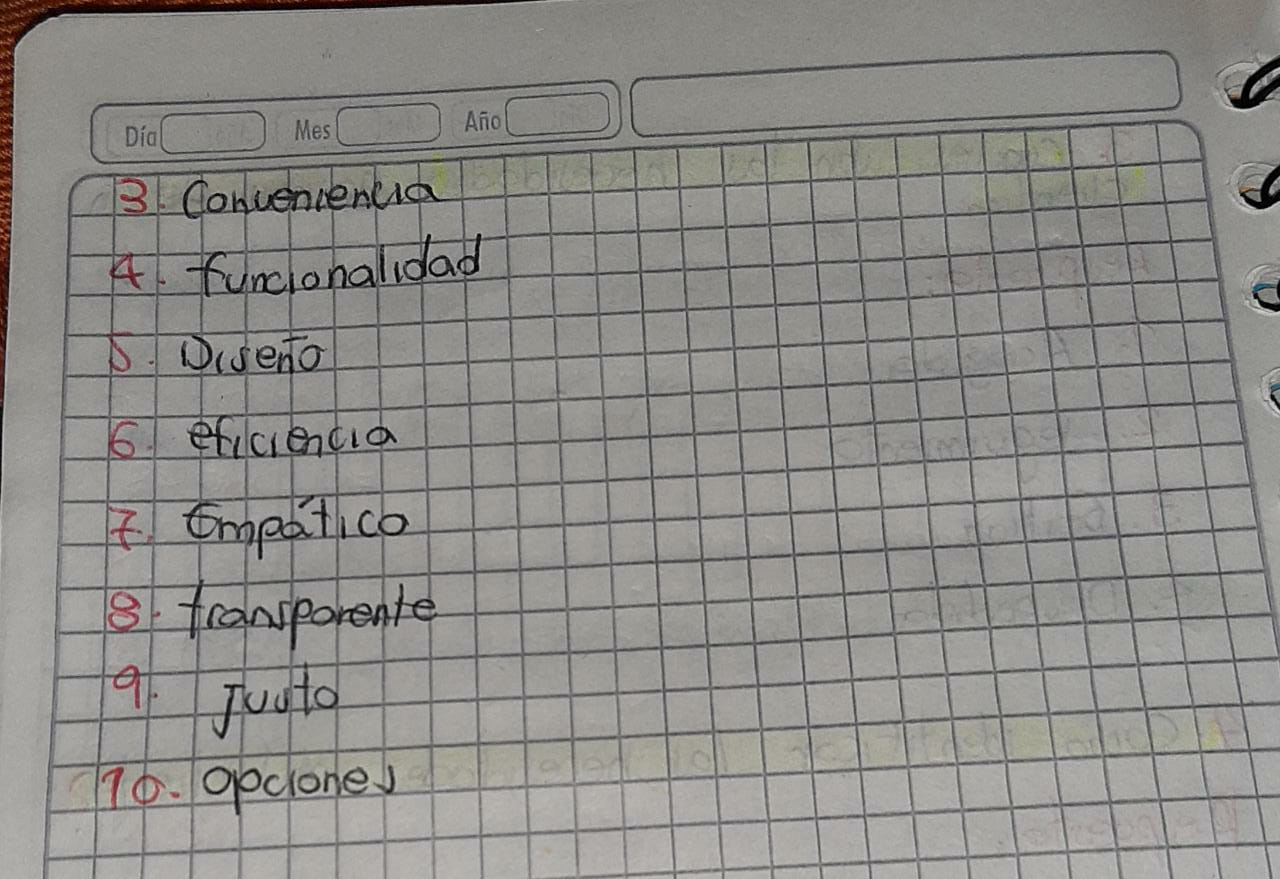 Día Mes Año
3. Conveniencia
4. funcionalidad
5. Diseño
6. eficiencia
7. Empático
8. transparente
9. Justo
10. opciones